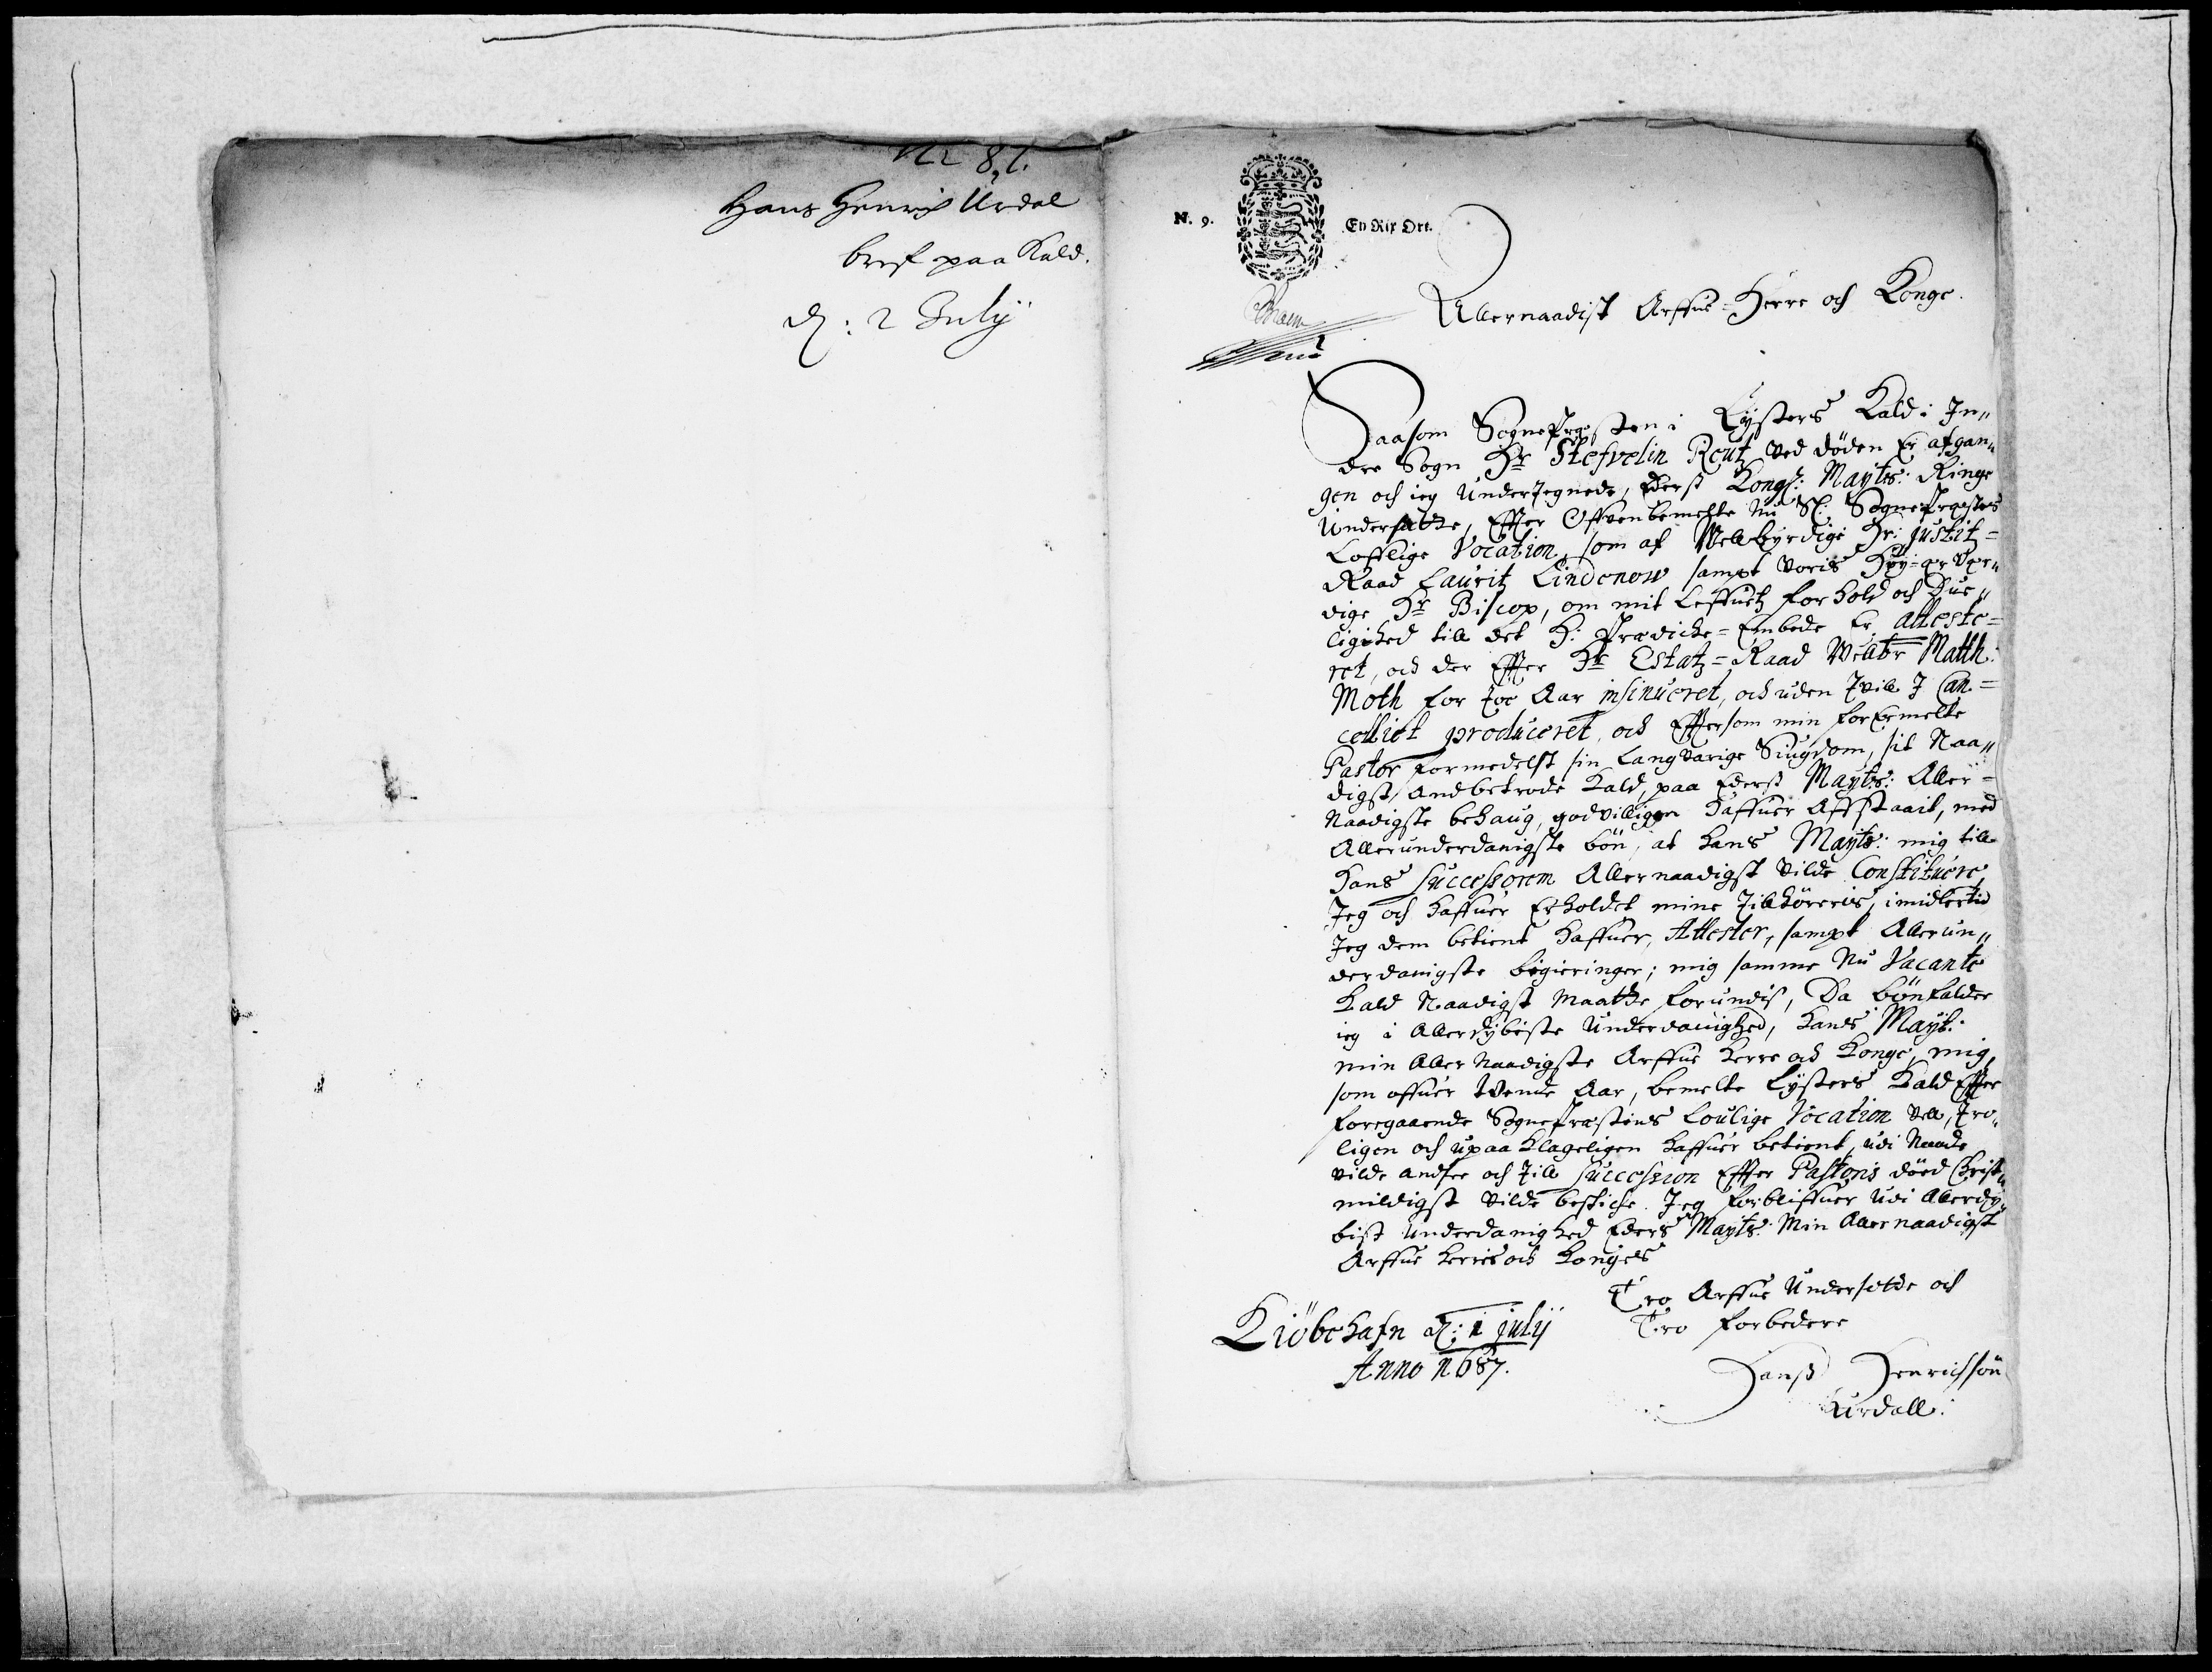 Nr 87.
Hans Henrich Urdal
bref paa Kald.
d: 2 July
N. 9. En Rix Ort.
Allernaadist Arffue-Herre och Konge.
Saasom Sognepresten i Lysters Kald i In„
dre Sogn Hr Stefvelin Reutz ved döden Er afgan„
gen och ieg Underteignede, Eders Kongl: Mayts: Ringe
Undersatte, Effter Offvenbemelte Nu Sl: Sogneprestes
Lofflige Vocation, som af Wellbyrdige Hr: Justitz=
Raad Lauritz Lindenow sampt voris Höy-ær Vær„
dige Hr Biscop, om mit Leffnetz forhold och Due„
lighed till det H: Prædicke=Embede Er atteste=
ret, och der Effter Hr Estatz=Raad Wellbr Matth:
Moth for toe Aar insinueret, och uden tvill I Can=
celliet produceret, och Effter som min for Ermelte
Pastor formedelst sin Langvarige Siugdom, sit Naa„
digst Andbetrode Kald, paa Eders Mayts: Aller=
Naadigste behaug, godvilligen haffuer Affstaait, med
Allerunderdanigste bön, at hans Mayts: mig till
Hans Successorem Allernaadigst vilde Constituere,
Jeg och haffuer Erholdet mine Tillhöreris, imidlertid
Jeg dem betient haffuer, Attester, sampt Allerun„
derdanigste begieringer; mig samme Nu Vacante
Kald Naadigst Maatte forundis, Da bönfalder
ieg i Allerdybeste Underdanighed, hands Mayt:
min Aller Naadigste Arffue Herre och Konge, mig,
som offuer tvende Aar, bemelte Lysters Kald Effter
foregaaende Sogneprestens Loulige Vocation vell, tro„
ligen och upaa Klageligen haffuer betient, udi Naade
vilde andsee och till Succession Effter Pastoris död Christ„
mildigst vilde beskicke. Jeg forbliffuer udi Allerdy„
bist Underdanighed Eders Mayts: Min Allernaadigst
Arffue Herris och Konges
Tro Arffue Undersotte och
Tro forbedere
Kiöbehafn d: 1 julij
Anno 1687.
Hanss Henrichsön
Urdall.